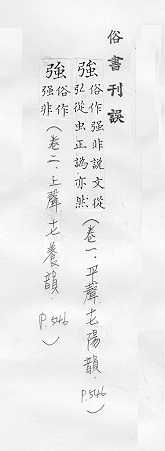 俗書刊誤
強 俗作强非說文從
弘從虫正譌亦然
(卷一.平聲.七陽韻.P.546)
強 俗作
强非
(卷二.上聲.七養韻.P.546)